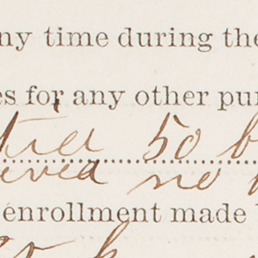 ny time during the
es for any other pur
50 b
ived no
enrollment made